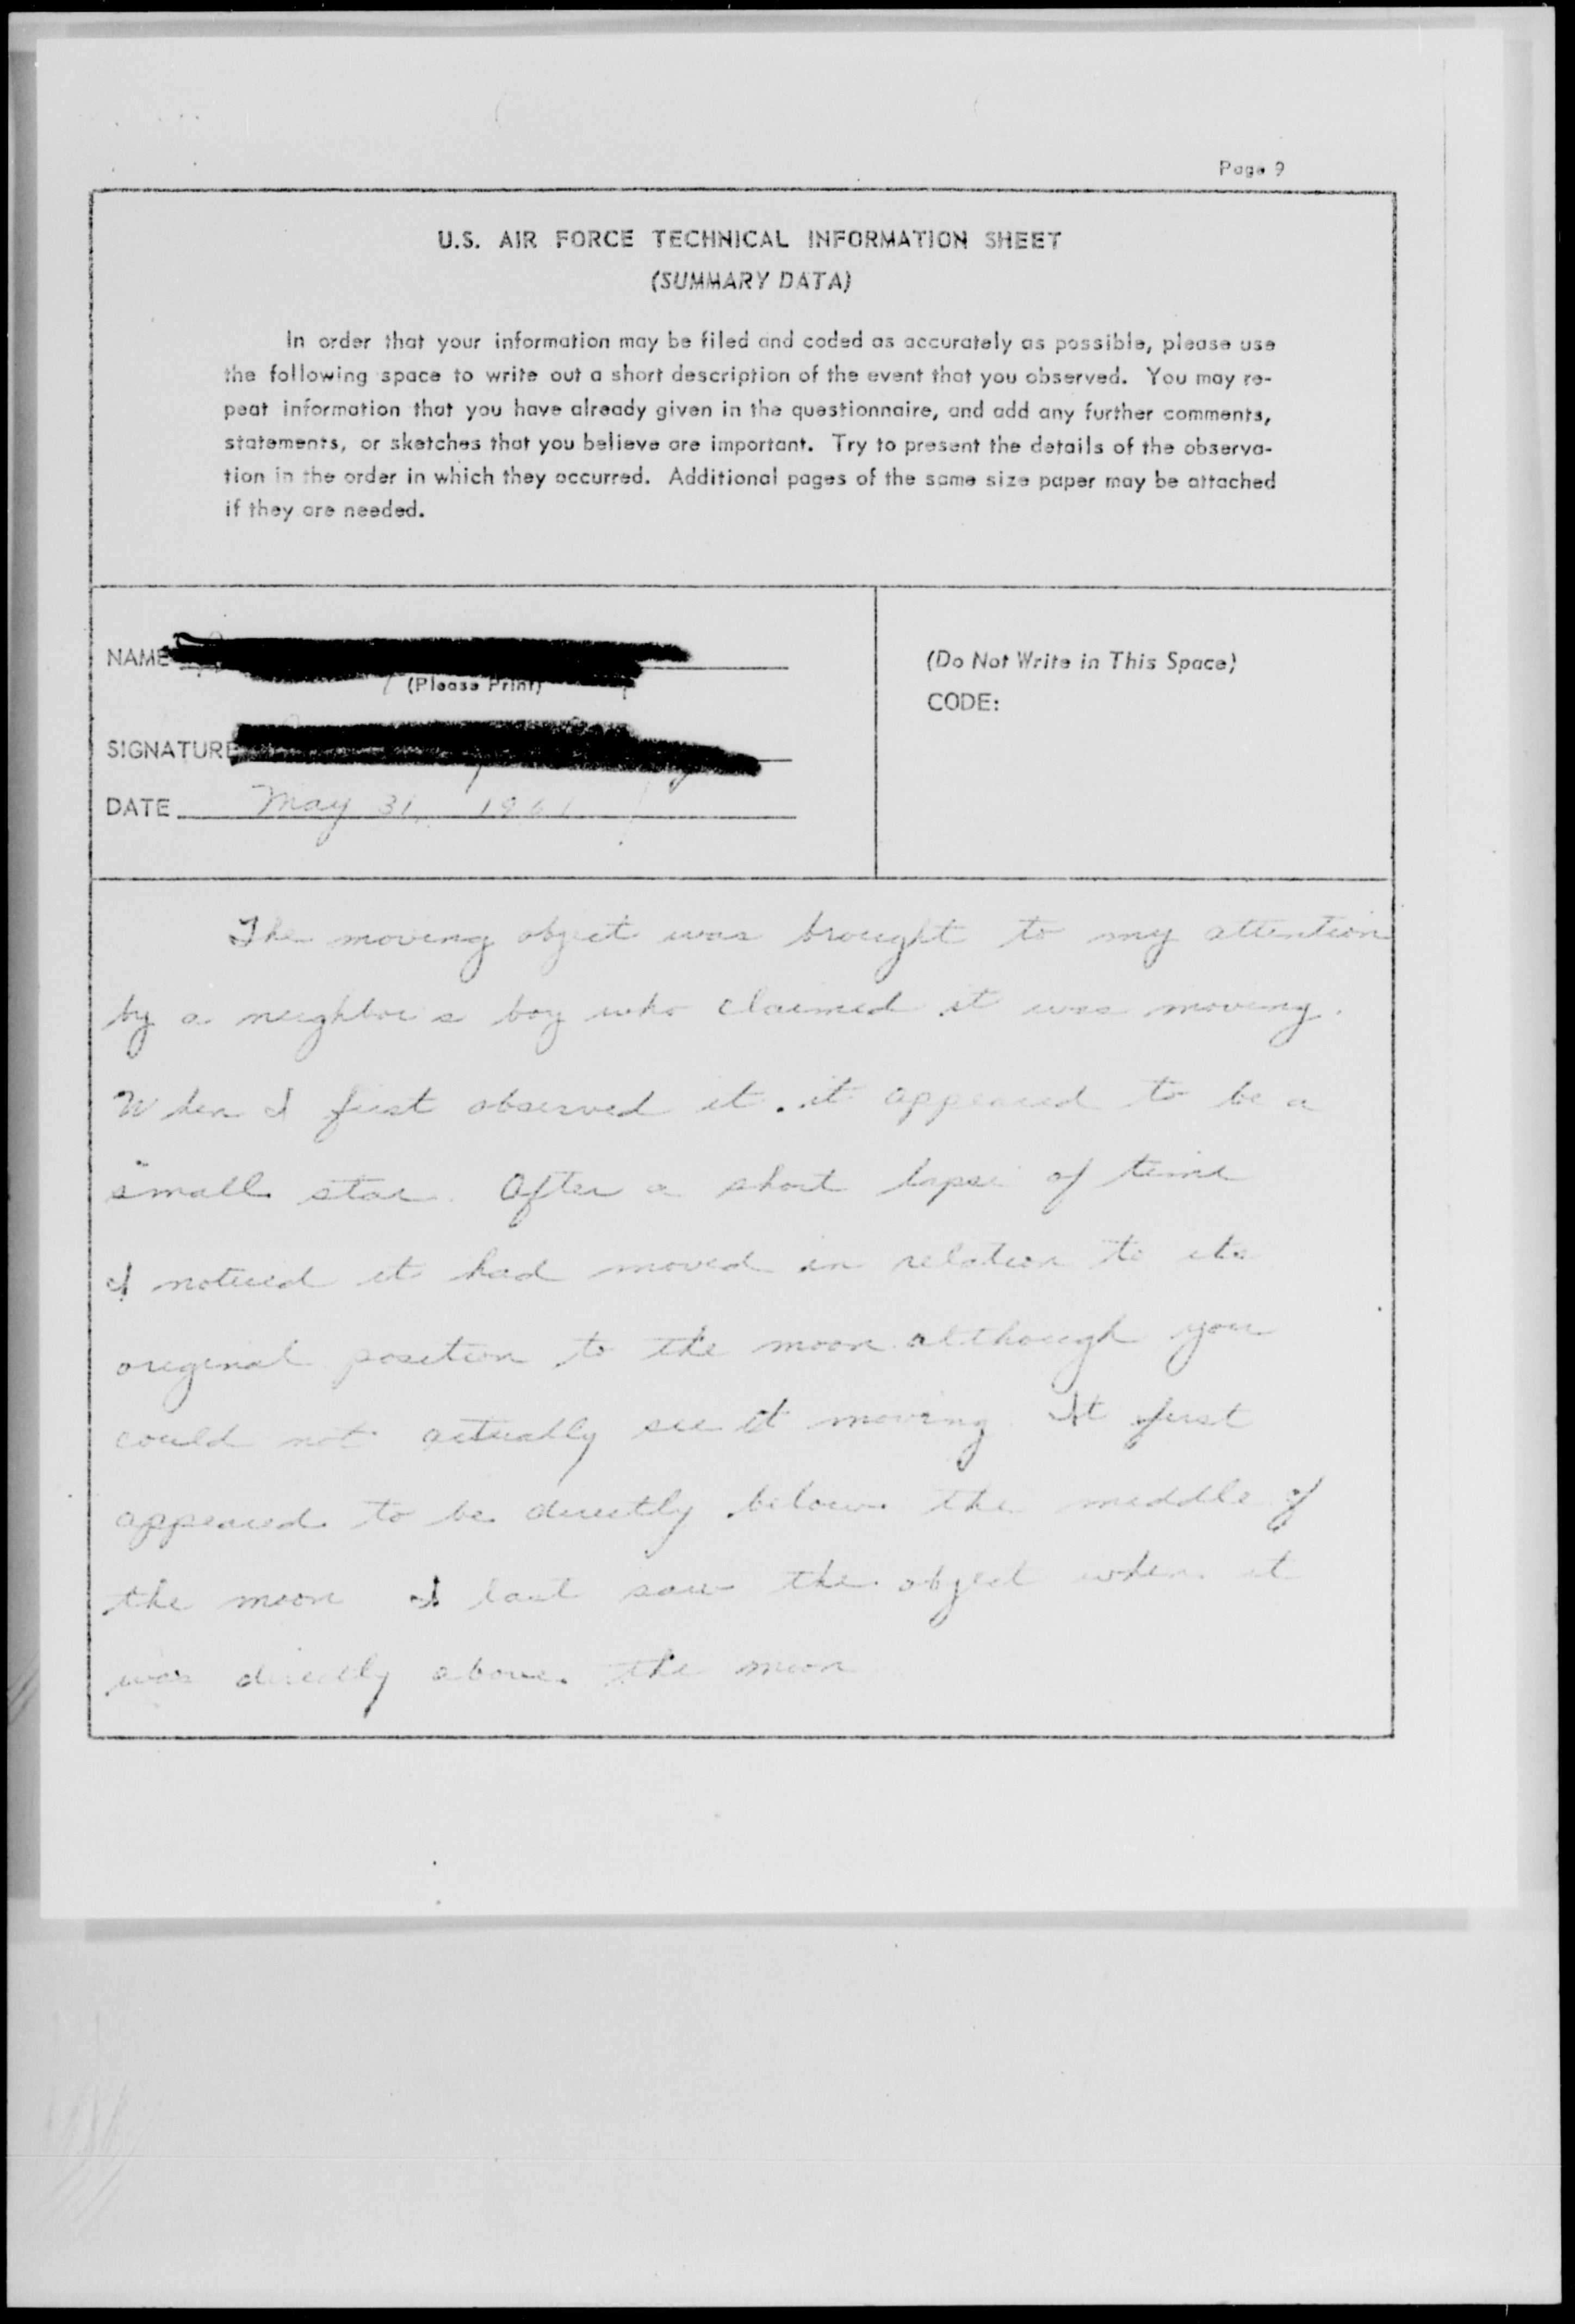 Page 9
U.S. AIR FORCE TECHNICAL INFORMATION SHEET
(SUMMARY DATA)
In order that your information may be filed and coded as accurately as possible, please use
the following space to write out a short description of the event that you observed. You may re-
peat information that you have already given in the questionnaire, and add any further comments,
statements, or sketches that you believe are important. Try to present the details of the observa-
tion in the order in which they occurred. Additional pages of the same size paper may be attached
if they are needed.
NAME
(Please Print)
SIGNATURE
DATE May 31, 1961
(Do Not Write in This Space)
CODE:
The moving object was brought to my attention
by a neighbor's boy who claimed it was moving.
When I first observed it, it appeared to be a
small star. After a short lapse of time
I noticed it had moved in relation to its
original position to the moon although you
could not actually see it moving. It first
appeared to be directly below the middle of
the moon I last saw the object when it
was directly above the moon